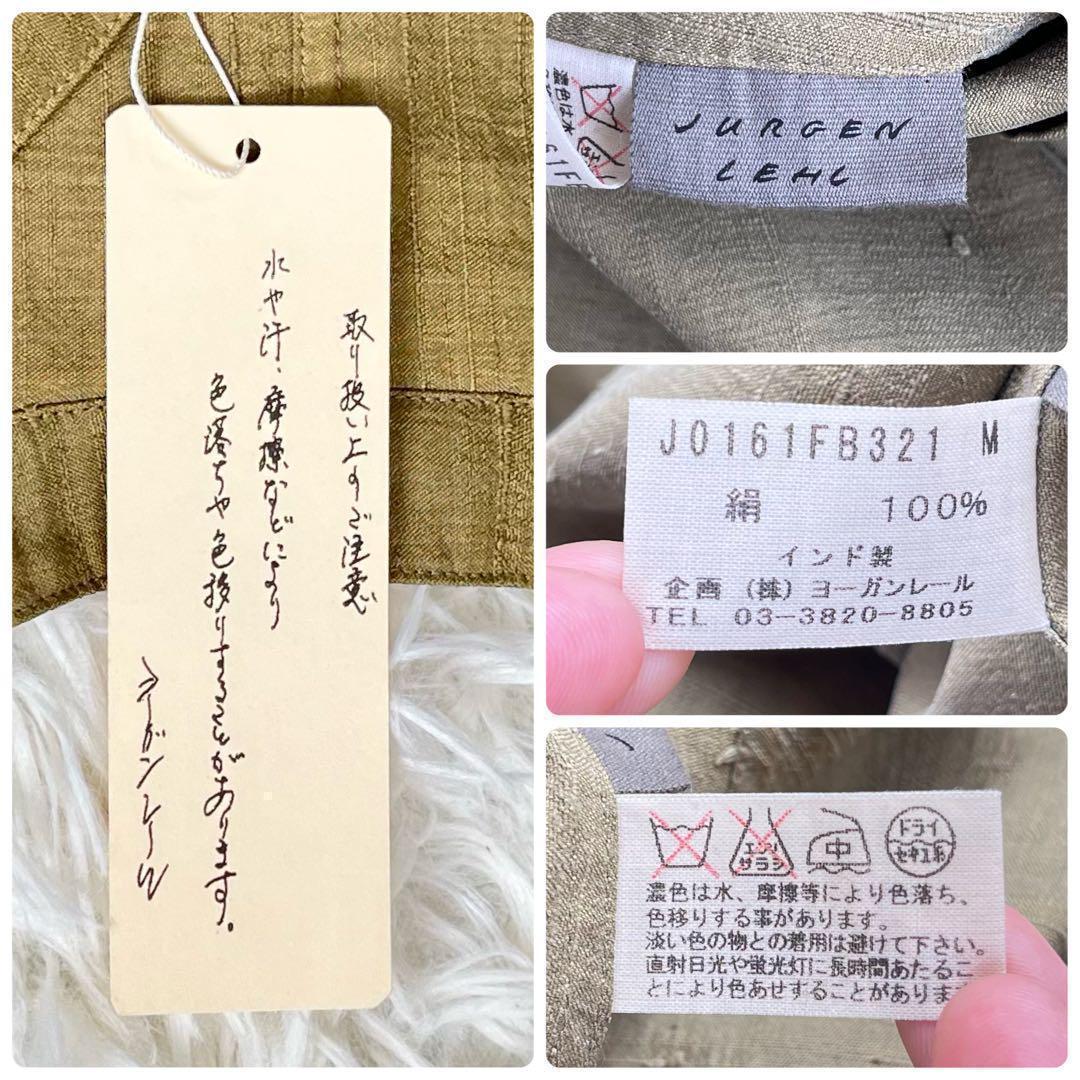 取り扱い上のご注意
水や汗、摩擦などにより
色落ちや色移りすることがあります。
ヨーガンレール
濃色は水
JURGEN
LEHL
J0161FB321 M
絹 100%
インド製
企画 (株) ヨーガンレール
TEL 03-3820-8805
エンソ
サラシ
中
ドライ
セキユ系
濃色は水、摩擦等により色落ち、
色移りする事があります。
淡い色の物との着用は避けて下さい。
直射日光や蛍光灯に長時間あたるこ
とにより色あせすることがありま